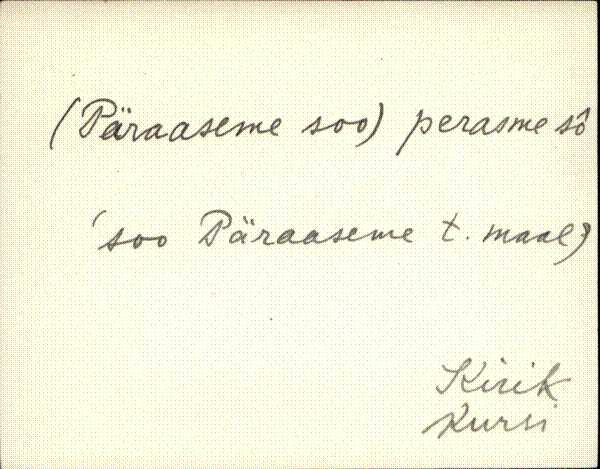 (Päraaseme soo) perasme sô
'soo Päraaseme t. maal'
Kirik
Kursi